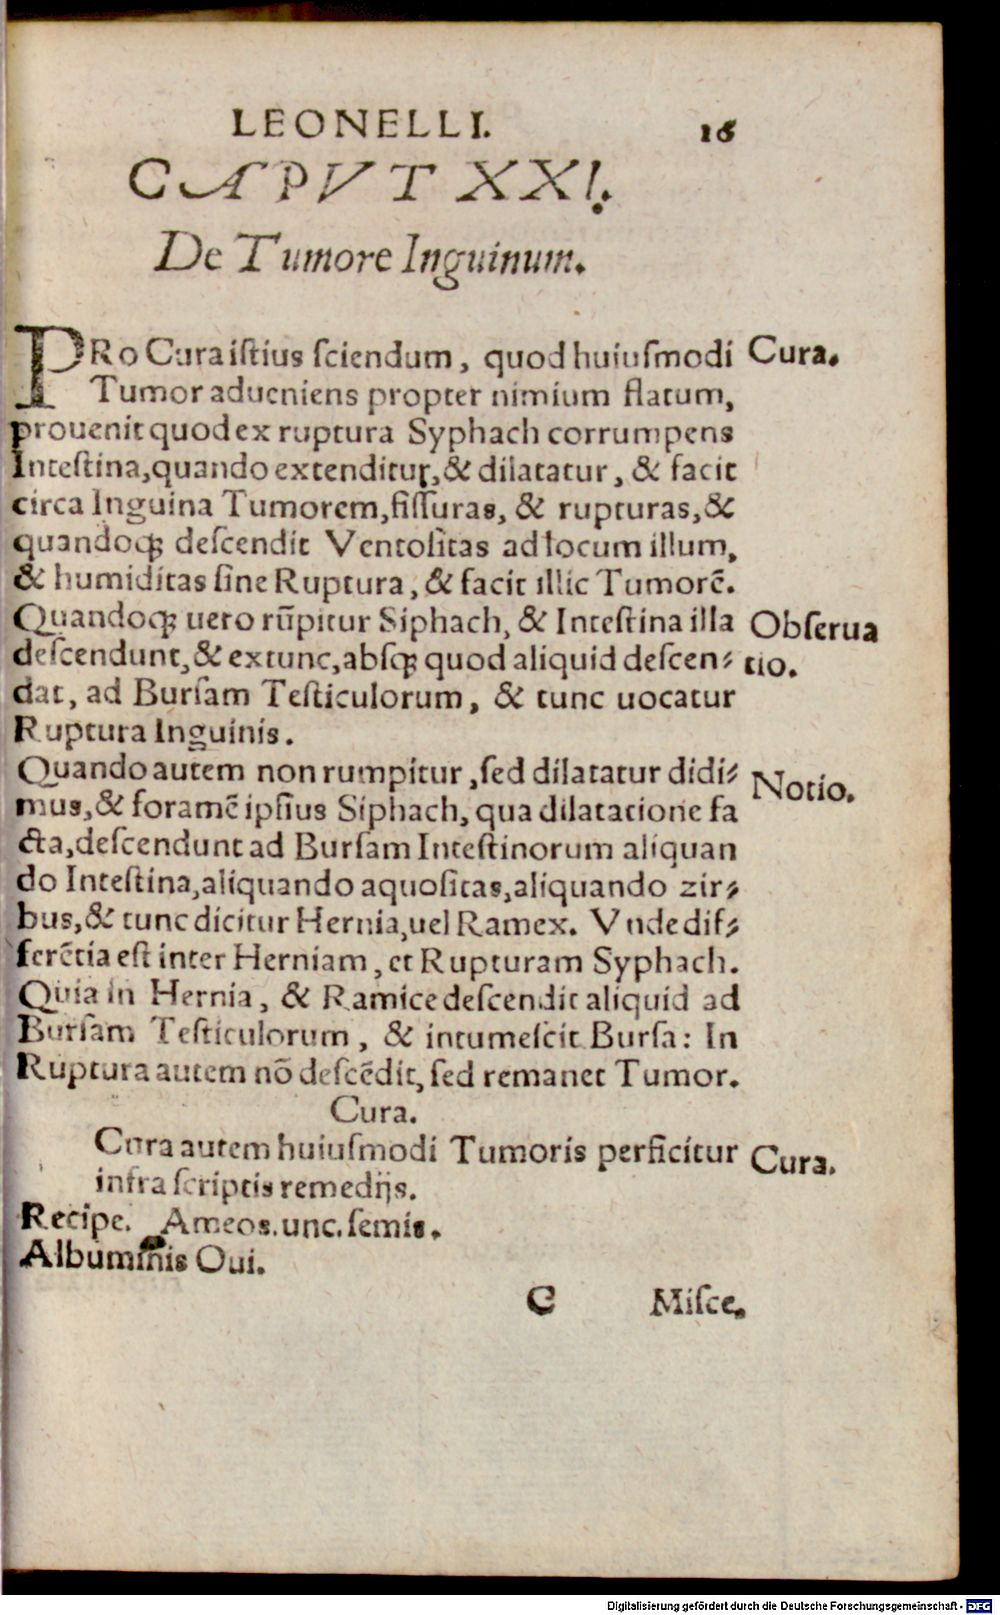 LEONELLI. 16
CAPVT XXI.
De Tumore Inguinum.
PRo Cura istius sciendum, quod huiusmodi Cura.
Tumor adueniens propter nimium flatum,
prouenit quod ex ruptura Syphach corrumpens
Intestina, quando extenditur, & dilatatur, & facit
circa Inguina Tumorem, fissuras, & rupturas, &
quandoqꝫ descendit Ventositas ad locum illum,
& humiditas sine Ruptura, & facit illic Tumorē.
Quandoqꝫ uero rūpitur Siphach, & Intestina illa Obserua
descendunt, & extunc, absqꝫ quod aliquid descen⸗ tio.
dat, ad Bursam Testiculorum, & tunc uocatur
Ruptura Inguinis.
Quando autem non rumpitur, sed dilatatur didi⸗ Notio.
mus, & foramē ipsius Siphach, qua dilatatione fa
cta, descendunt ad Bursam Intestinorum aliquan
do Intestina, aliquando aquositas, aliquando zir⸗
bus, & tunc dicitur Hernia, uel Ramex. Vnde dif⸗
ferētia est inter Herniam, et Rupturam Syphach.
Quia in Hernia, & Ramice descendit aliquid ad
Bursam Testiculorum, & intumescit Bursa: In
Ruptura autem nō descēdit, sed remanet Tumor.
Cura.
Cura autem huiusmodi Tumoris perficitur Cura.
infra scriptis remedijs.
Recipe. Ameos. unc. semis.
Albuminis Oui.
C Misce.
Digitalisierung gefördert durch die Deutsche Forschungsgemeinschaft - DFG